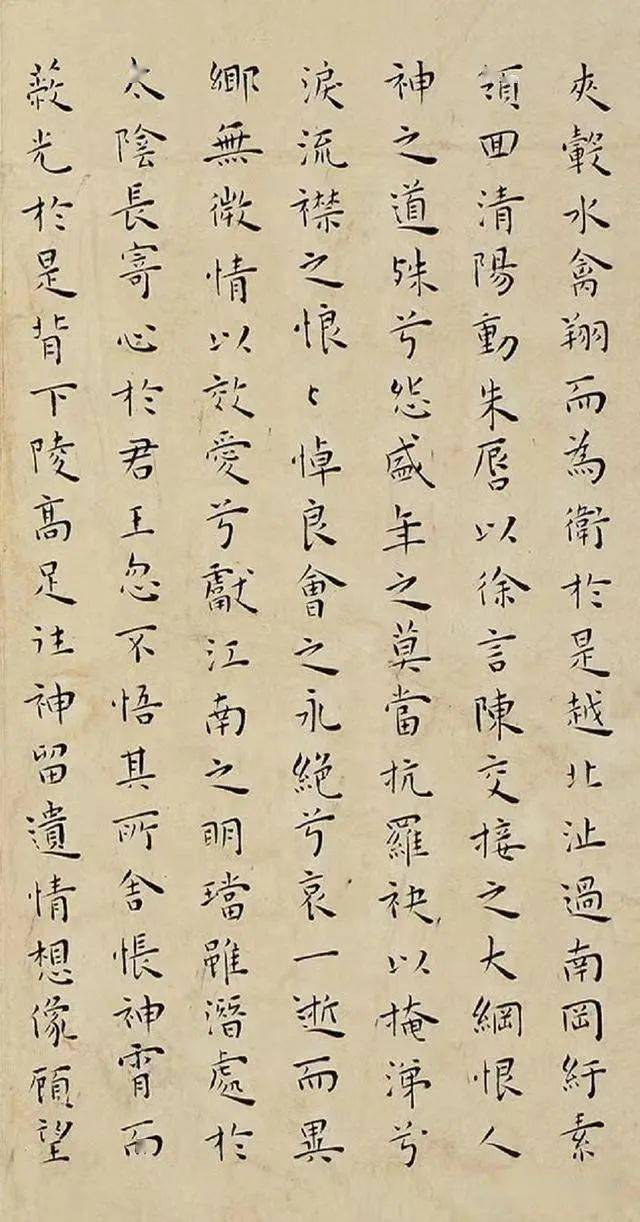 夾轂水禽翔而為衛於是越北沚過南岡紆素
領回清陽動朱脣以徐言陳交接之大綱恨人
神之道殊兮怨盛年之莫當抗羅袂以掩涕兮
淚流襟之悢〻悼良會之永絕兮哀一逝而異
鄉無微情以效愛兮獻江南之明璫雖潛處於
太陰長寄心於君王忽不悟其所舍悵神霄而
蔽光於是背下陵高足往神留遺情想像顧望